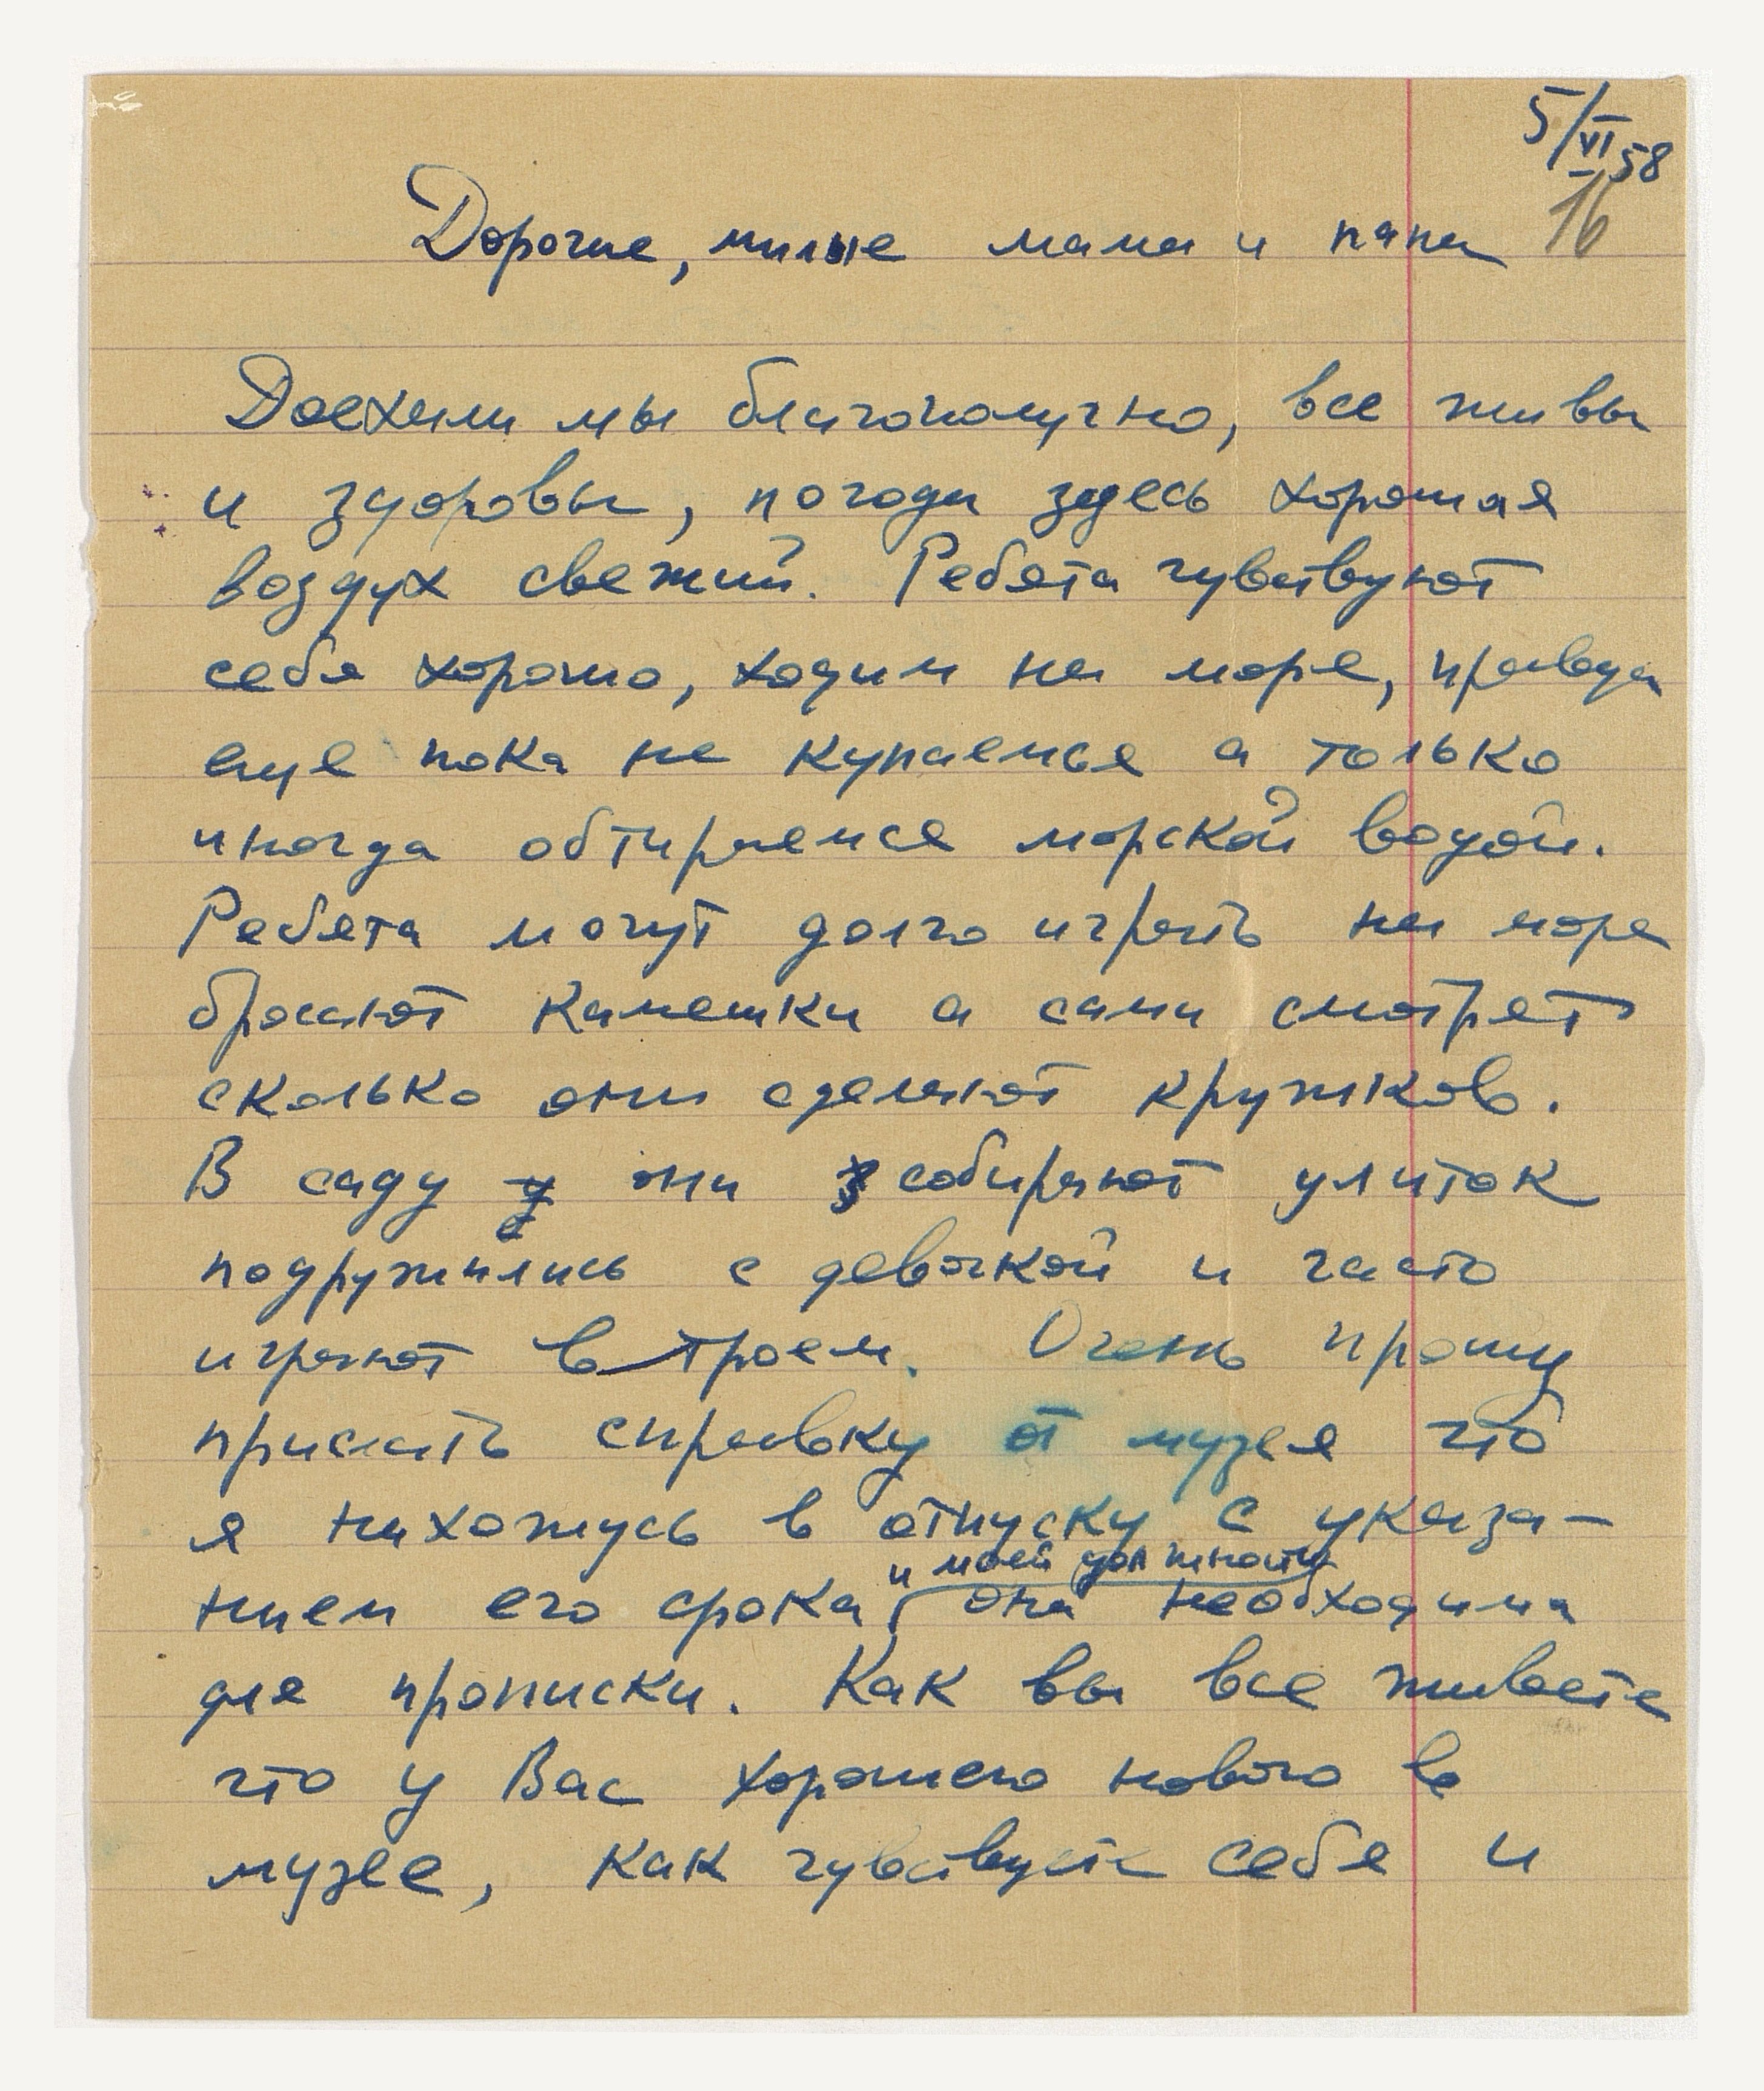 5/VI 58
16
Дорогие, милые мама и папа
Доехали мы благополучно, все живы
и здоровы, погода здесь хорошая
воздух свежий. Ребята чувствуют
себя хорошо, ходим на море, правда
еще пока не купаемся а только
иногда обтираемся морской водой.
Ребята могут долго играть на море
бросают камешки а сами смотрят
сколько они сделают кружков.
В саду они собирают улиток
подружились с девочкой и часто
играют втроем. Очень прошу
прислать справку от музея что
я нахожусь в отпуску с указа-
и моей должности
нием его срока, она необходима
для прописки. Как вы все живете
что у Вас хорошего нового в
музее, как чувствуете себя и